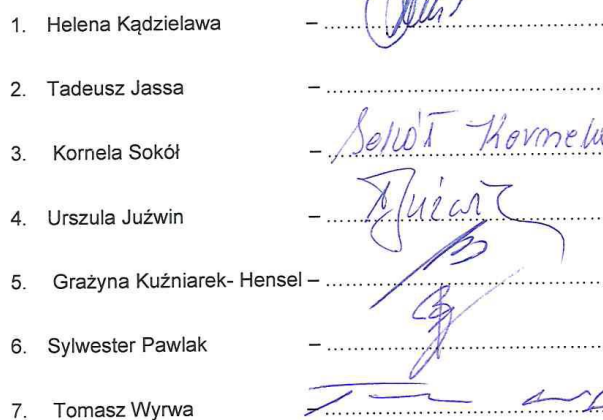 1. Helena Kądzielawa – ........................
2. Tadeusz Jassa – ........................
3. Kornela Sokół – Sokół Kornela
4. Urszula Juźwin – ........................
5. Grażyna Kuźniarek- Hensel – ........................
6. Sylwester Pawlak – ........................
7. Tomasz Wyrwa – ........................